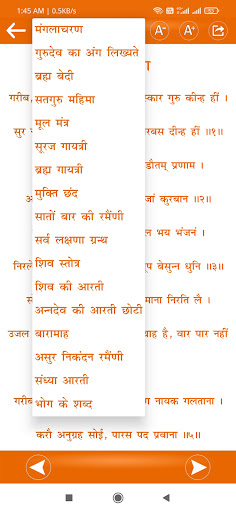 1:45 AM | 0.5KB/s
A- A+
मंगलाचरण
गुरुदेव का अंग लिख्यते
गरीब, स्कार गुरु कीन्ह हीं ।
ब्रह्म बेदी
सतगुरु महिमा
सुर रबस दीन्ह हीं ॥१॥
मूल मंत्र
सूरज गायत्री
डौतम् प्रणाम ।
ब्रह्म गायत्री
जां कुरबान ॥२॥
मुक्ति छंद
सातों बार की रमैंणी
ल भय भंजनं ।
सर्व लक्षणा ग्रन्थ
शिव स्तोत्र
निरले प बेसुन्न धुनि ॥३॥
शिव की आरती
माना निरति लै ।
अन्नदेव की आरती छोटी
बारामाह
उजल याह है, वार पार नहीं
असुर निकंदन रमैंणी
संध्या आरती
गरीब ना नायक गलताना ।
भोग के शब्द
करौ अनुग्रह सोई, पारस पद प्रवाना ॥५॥